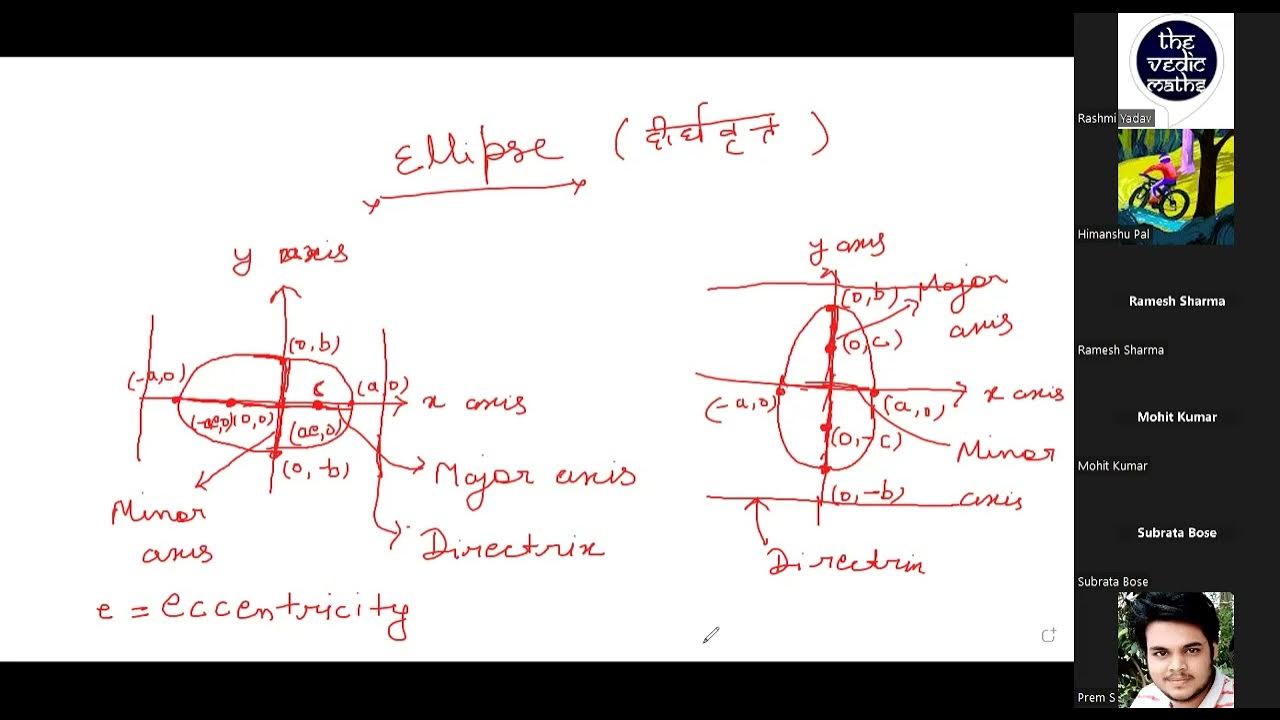 Ellipse (दीर्घवृत)
y axis
(0, b)
(-a, 0)
(a, 0)
x axis
(-ae, 0)
(0, 0)
(ae, 0)
(0, -b)
Major axis
Minor
axis
Directrix
e = eccentricity
y axis
(0, b)
Major
axis
(0, c)
x axis
(-a, 0)
(a, 0)
(0, -c)
Minor
axis
(0, -b)
Directrix
the
vedic
maths
Rashmi Yadav
Himanshu Pal
Ramesh Sharma
Ramesh Sharma
Mohit Kumar
Mohit Kumar
Subrata Bose
Subrata Bose
Prem S